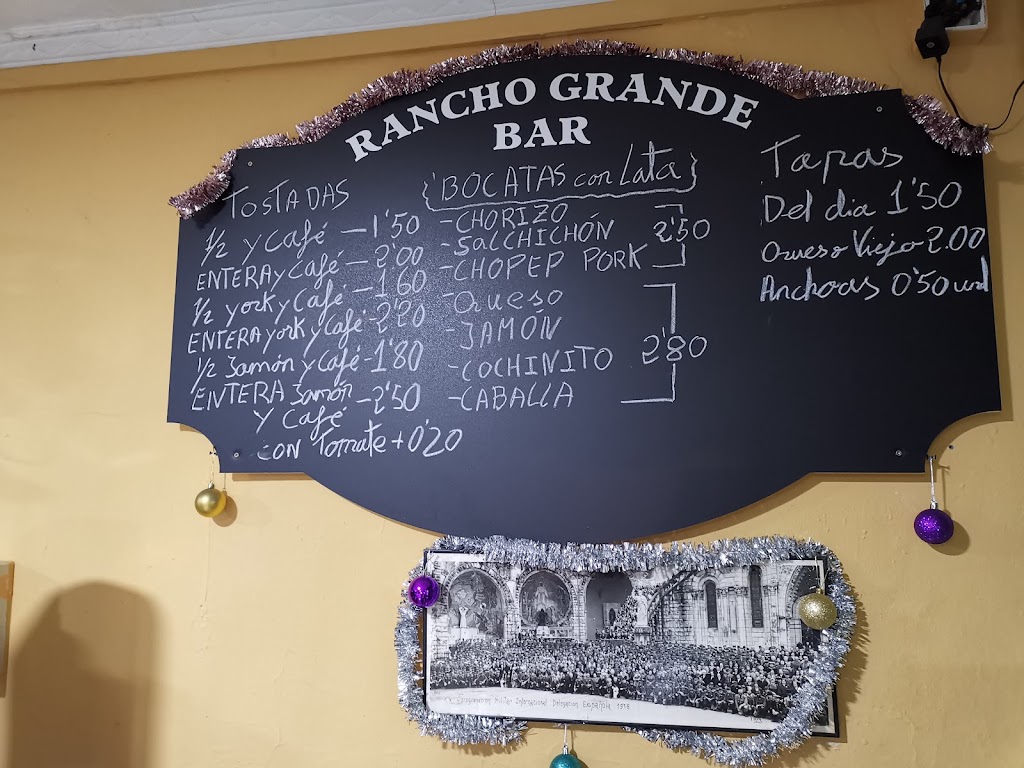 RANCHO GRANDE
BAR
TOSTADAS
1/2 y Café - 1'50
ENTERA y Café - 2'00
1/2 york y Café - 1'60
ENTERA york y Café - 2'20
1/2 Jamón y Café - 1'80
ENTERA Jamón - 2'50
y Café
con Tomate + 0'20
BOCATAS con Lata
- CHORIZO
- SALCHICHÓN
- CHOPEP PORK
2'50
- Queso
- JAMÓN
- COCHINITO
- CABALLA
2'80
Tapas
Del dia 1'50
Queso Viejo 2.00
Anchoas 0'50 und
Peregrinacion Militar Internacional Delegacion Española 1978